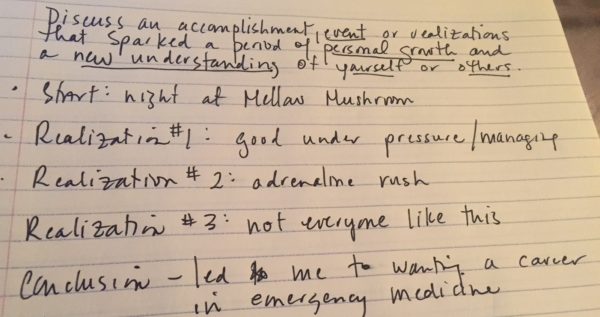 Discuss an accomplishment, event or realizations
that sparked a period of personal growth and
a new understanding of yourself or others.
• Start: night at Mellow Mushroom
- Realization #1: good under pressure/managing
- Realization # 2: adrenaline rush
Realization #3: not everyone like this
Conclusion - led to me to wanting a career
in emergency medicine